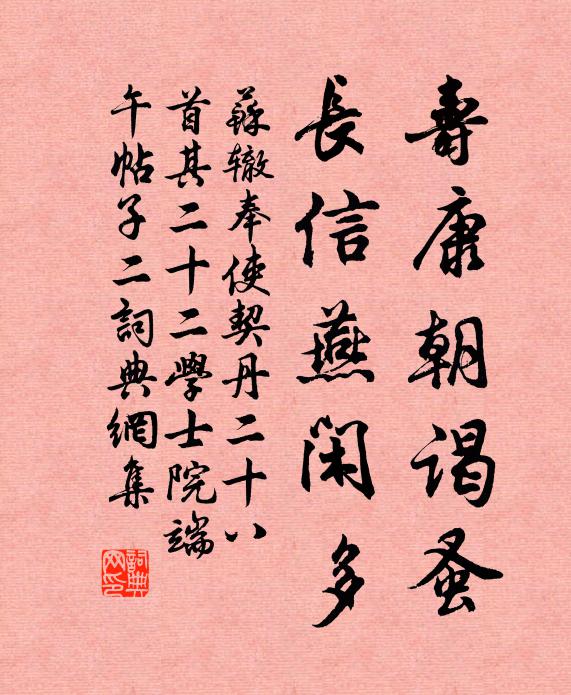 壽康朝谒蚤
長信燕閑多
蘇辙奉使契丹二十八
首其二十二學士院端
午帖子二詞典網集
詞典网印